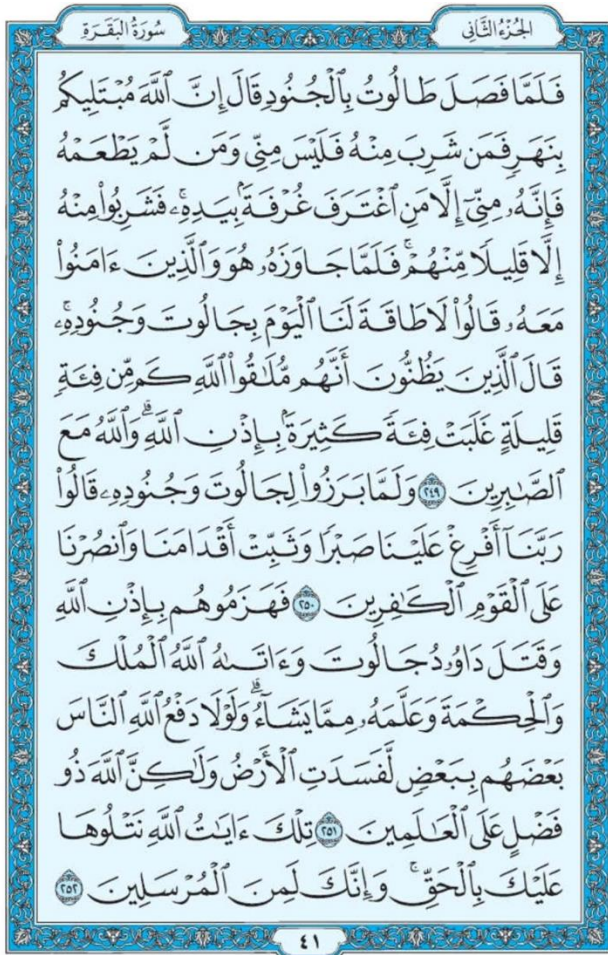 الجُزْءُ الثَّانِي
سُورَةُ البَقَرَةِ
فَلَمَّا فَصَلَ طَالُوتُ بِٱلْجُنُودِ قَالَ إِنَّ ٱللَّهَ مُبْتَلِيكُم
بِنَهَرٍ فَمَن شَرِبَ مِنْهُ فَلَيْسَ مِنِّي وَمَن لَّمْ يَطْعَمْهُ
فَإِنَّهُۥ مِنِّيٓ إِلَّا مَنِ ٱغْتَرَفَ غُرْفَةَۢ بِيَدِهِۦۚ فَشَرِبُوا۟ مِنْهُ
إِلَّا قَلِيلًا مِّنْهُمْۚ فَلَمَّا جَاوَزَهُۥ هُوَ وَٱلَّذِينَ ءَامَنُوا۟
مَعَهُۥ قَالُوا۟ لَا طَاقَةَ لَنَا ٱلْيَوْمَ بِجَالُوتَ وَجُنُودِهِۦۚ
قَالَ ٱلَّذِينَ يَظُنُّونَ أَنَّهُم مُّلَٰقُوا۟ ٱللَّهِ كَم مِّن فِئَةٍ
قَلِيلَةٍ غَلَبَتْ فِئَةً كَثِيرَةَۢ بِإِذْنِ ٱللَّهِۗ وَٱللَّهُ مَعَ
ٱلصَّٰبِرِينَ ٢٤٩ وَلَمَّا بَرَزُوا۟ لِجَالُوتَ وَجُنُودِهِۦ قَالُوا۟
رَبَّنَآ أَفْرِغْ عَلَيْنَا صَبْرًا وَثَبِّتْ أَقْدَامَنَا وَٱنصُرْنَا
عَلَى ٱلْقَوْمِ ٱلْكَٰفِرِينَ ٢٥٠ فَهَزَمُوهُم بِإِذْنِ ٱللَّهِ
وَقَتَلَ دَاوُۥدُ جَالُوتَ وَءَاتَىٰهُ ٱللَّهُ ٱلْمُلْكَ
وَٱلْحِكْمَةَ وَعَلَّمَهُۥ مِمَّا يَشَآءُۗ وَلَوْلَا دَفْعُ ٱللَّهِ ٱلنَّاسَ
بَعْضَهُم بِبَعْضٍ لَّفَسَدَتِ ٱلْأَرْضُ وَلَٰكِنَّ ٱللَّهَ ذُو
فَضْلٍ عَلَى ٱلْعَٰلَمِينَ ٢٥١ تِلْكَ ءَايَٰتُ ٱللَّهِ نَتْلُوهَا
عَلَيْكَ بِٱلْحَقِّۚ وَإِنَّكَ لَمِنَ ٱلْمُرْسَلِينَ ٢٥٢
٤١